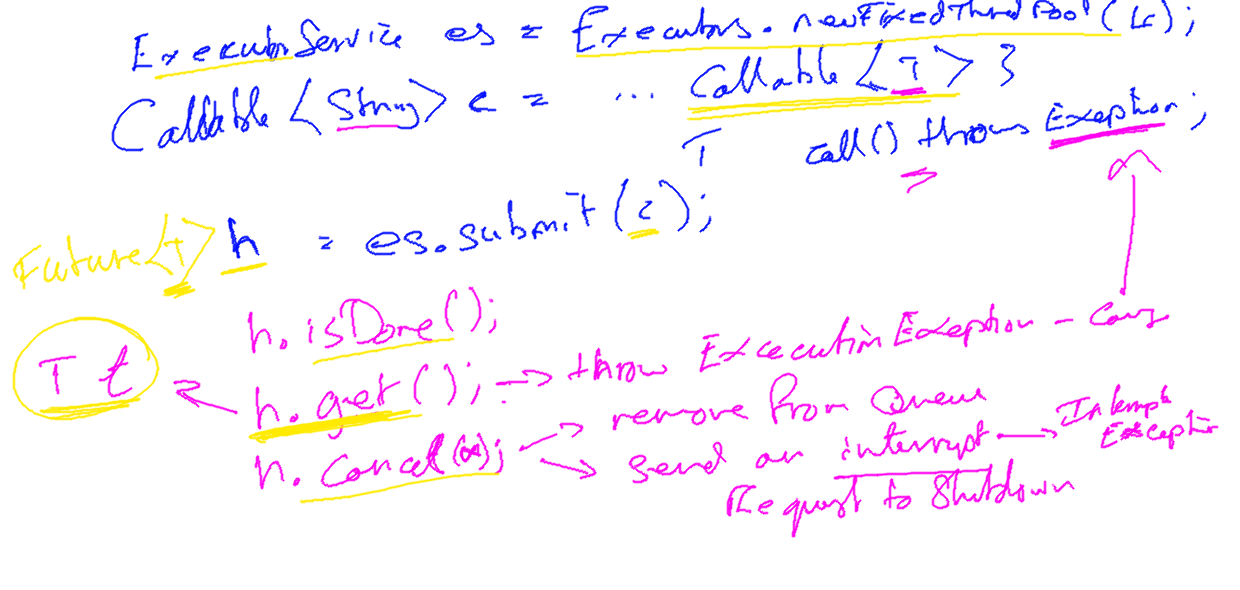 ExecutorService es = Executors.newFixedThreadPool( );
Callable <String> c = ... Callable <T> }
T call() throws Exception;
Future<T> h = es.submit(c);
h. isDone();
T t h. get(); → throw ExcecutionException -
h. Cancel( ); remove from Queue
send an interrupt
Request to Shutdown